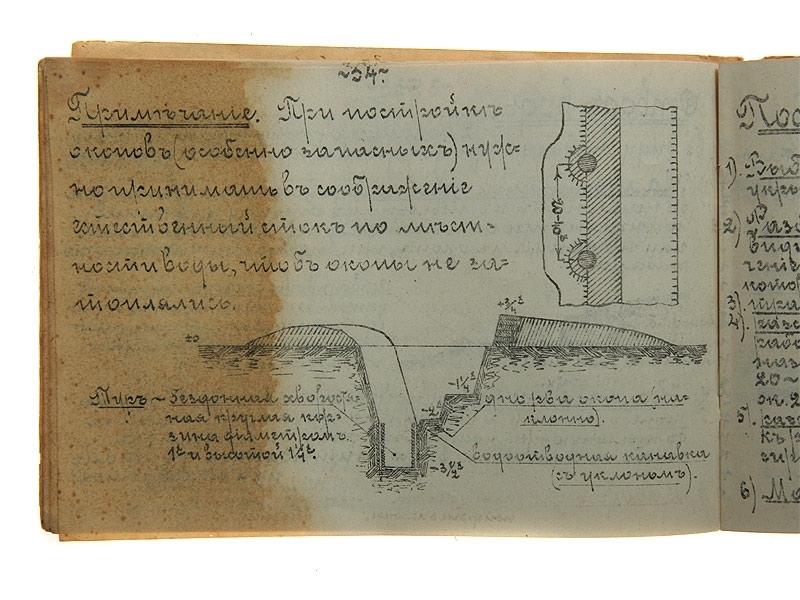 ~54~
Примѣчаніе. При постройкѣ
окоповъ (особенно запасныхъ) нуж-
но принимать въ соображеніе
естественный стокъ по мѣст-
ности воды, чтобъ окопы не за-
топлялись.
20-10
+3/4
±0
-1 1/4
Туръ – бездонная хворостя-
ная круглая кор-
зина діаметромъ
и высотой
дно рва окопа (на-
клонно).
-3 1/2
водоотводная канавка
(съ уклономъ).
Пос
1). Выб
укрѣ
2)
разо
видъ
ченіе
кото
3).
4).
рабо
наз
20~
ок. 2
5).
къ
6)